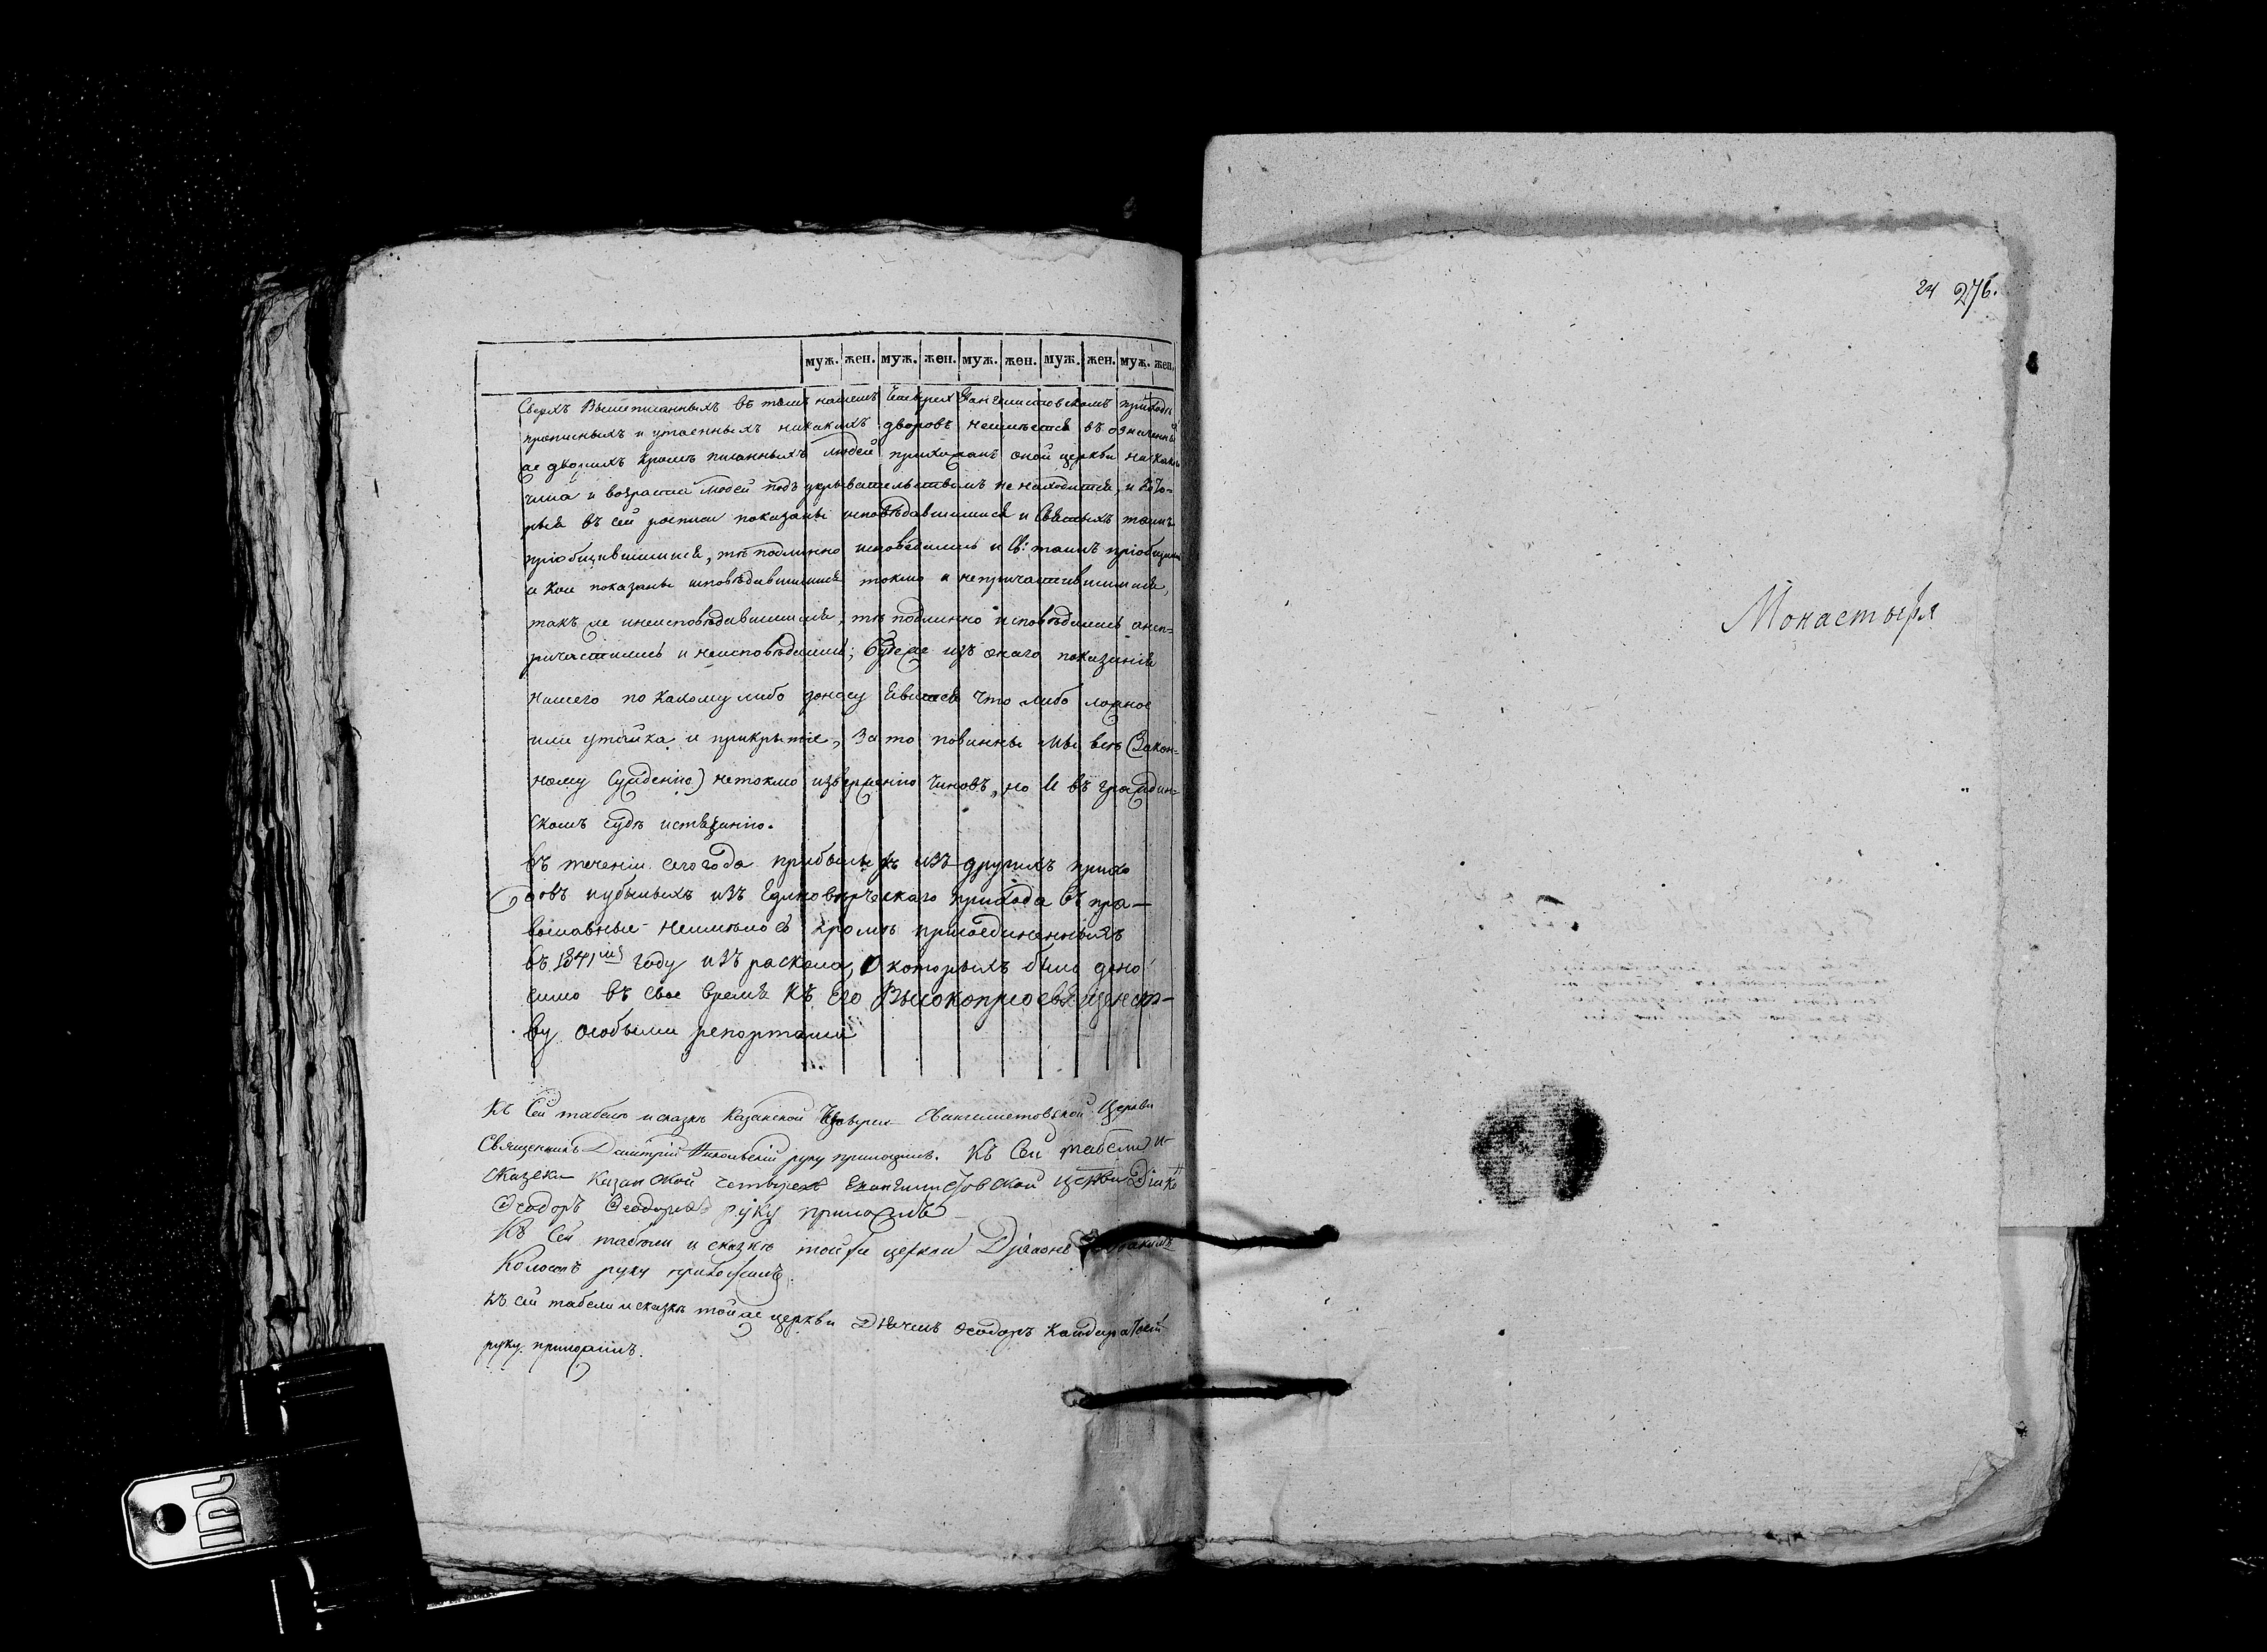 муж. жен. муж. жен. муж. жен. муж. жен. муж. жен.
Сверхъ вышеписанныхъ въ томъ нашемъ Четырех Евангелистовскомъ приходѣ
прописныхъ и утаенныхъ никакихъ дворовъ неимѣется въ означенны
хъ дворахъ кромѣ писанныхъ людей прихожанъ оной церкви никакого
чина и возраста людей подъ укрывательствомъ не находится, и кото-
рыя въ сей росписи показаны исповѣдавшимися и Святыхъ таинъ
пріобщившимися, тѣ подлинно исповѣдались и Св: таинъ пріобщились
и кои показаны исповѣдавшимися токмо и непричастившимися,
такъ же инеисповѣдавшимися, тѣ подлинно исповѣдались инеп-
ричастились и неисповѣдались; Буде же изъ онаго показанія
нашего по какому либо доносу явится что либо ложное
или утайка и прикрытіе, зато повинны мы всѣ (Закон-
ному сужденію) нетокмо изверженію чиновъ, но и въ граждан-
скомъ судѣ истязанію.
въ теченіи сего года прибылыхъ изъ другихъ прихо
довъ иубылыхъ изъ Единовѣрческаго прихода въ пра-
вославные неимѣлось кромѣ присоединенныхъ
въ 1841мъ году изъ раскола, о которыхъ было доно
симо въ свое время къ Его Высокопреосвященст-
ву особыми репортами
Къ сей табели исказкѣ Казанской Четырех Евангелистовской Церкви
Священникъ Дмитрій Никольскій руку приложилъ. Къ Сей табели и
сказки Казанской четырехъ Евангелистовской церкви
Ѳеодоръ Ѳеодоровъ руку приложилъ
Къ Сей табели и сказкѣ той же церкви Діаконъ
Колосовъ руку приложилъ.
Къ сей табели исказкѣ той же церкви Дьячекъ Ѳеодоръ
руку приложилъ.
24 276.
Монастыря